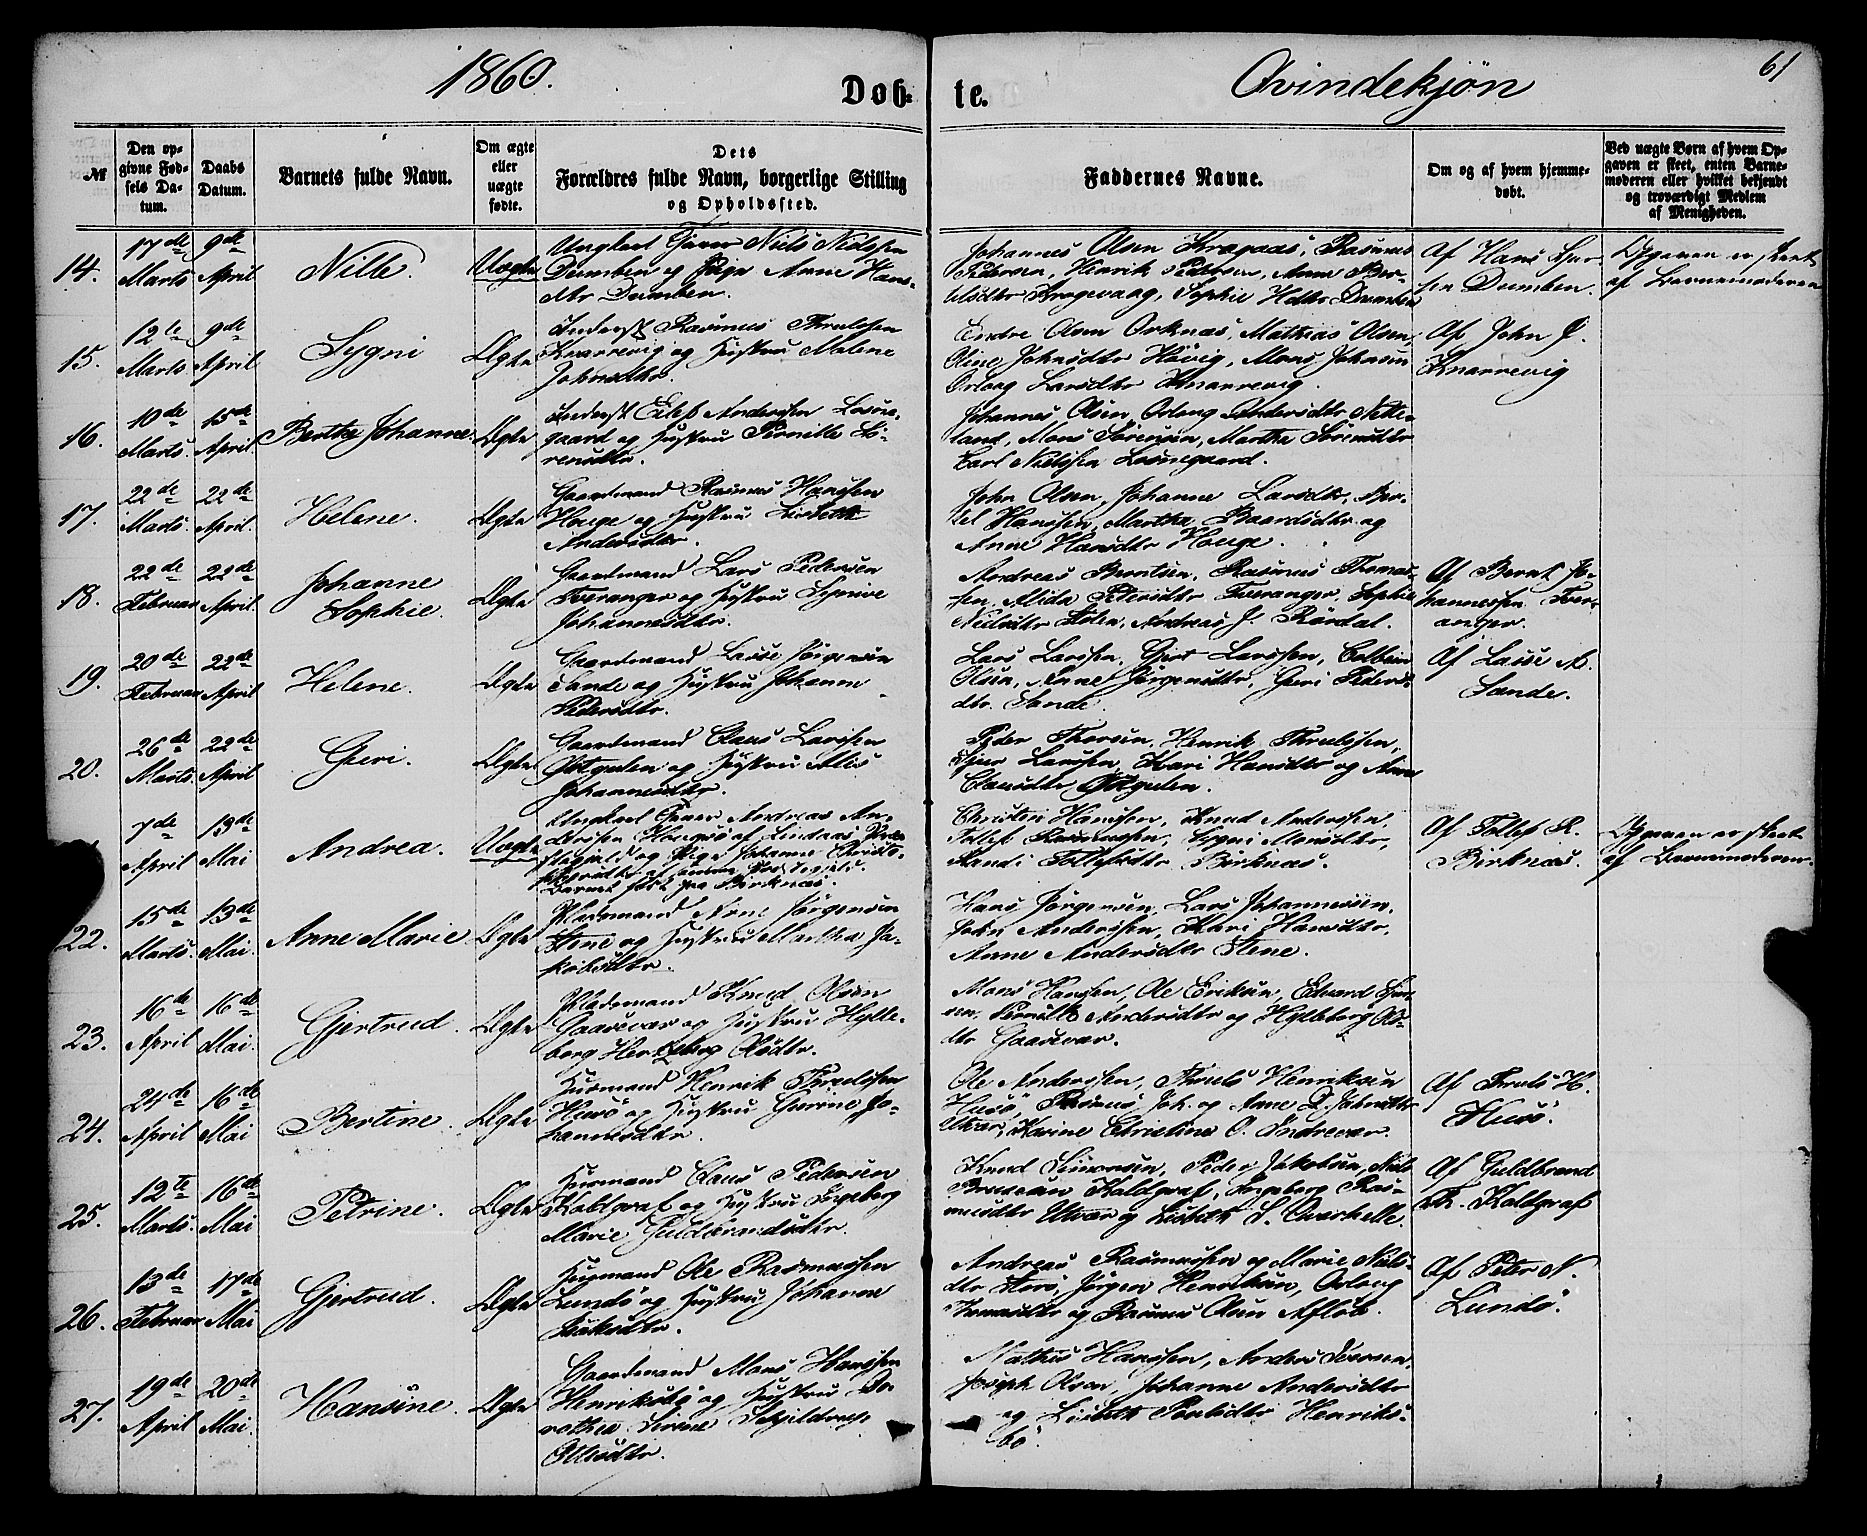 1860.
Døb-
te.
Qvindekjøn
61
№
Den op-
givne Fød-
sels Da-
tum.
Daabs
Datum.
Barnets fulde Navn.
Om ægte
eller
uægte
fødte.
Dets
Forældres fulde Navn, borgerlige Stilling
og Opholdssted.
Faddernes Navne.
Om og af hvem hjemme-
døbt.
Ved uægte Børn af hvem Op-
gaven er skeet, enten Barne-
moderen eller hvilket bekjendt
og troværdigt Medlem
af Menigheden.
14.
17de
Marts
9de
April
Nille.
Uægte
Ungkarl Niels Nielsen
Dumben og Pige Anne Hans-
dtr Dumben.
Johannes Olsen Kragaas, Rasmus
Pedersen, Henrik Pedersen, Anne Ber-
telsdtr Kragevaag, Sophie Hdtr Dumben
Af Hans
Dumben.
Opgaven er skeet
af Barnemoderen
15.
12te
Marts
9de
April
Sygni
Ægte
Inderst Rasmus Thrulssen
Knarrevig og Hustru Malene
Johnsdtr.
Endre Olsen Orknæs, Mathias Olsen,
Oline Johnsdtr Høvig, Mons Johnsen
Larsdtr Knarrevig.
Af John J.
Knarrevig
16.
10de
Marts.
15de
April.
Berthe Johanne.
Ægte
Inderst Anderssen Losne-
gaard og Hustru Pernille Sö-
rensdtr.
Johannes Olsen, Andersdtr Nette-
land, Mons Sörensen, Martha Sörensdtr
Carl Nielssen Losnegaard.
17.
22de
Marts.
22de
April.
Helene.
Ægte
Gaardmand Rasmus Hanssen
Houge og Hustru Lisbeth
Andersdtr.
John Olsen, Johanne Larsdtr, Ber-
tel Hanssen, Martha Baardsdtr og
Anne Hansdtr Houge.
18.
22de
Februar
22de
April.
Johanne
Sophie.
Ægte
Gaardmand Lars Pedersen
Tveranger og Hustru Synnive
Johannesdtr.
Andreas Berntsen, Rasmus Thomas-
sen, Alida Petersdtr Tveranger, Sophie
Nielsdtr Andreas J. Rördal.
Af Bernt Jo-
hannessen Tver-
anger.
19.
20de
Februar
22de
April
Helene.
Ægte
Gaardmand Lasse Jörgensen
Sande og Hustru Johanne
Pedersdtr.
Lars Larssen, Gjert Larssen, Colbein
Olsen, Anne Jörgensdtr, Geri Peders-
dtr. Sande.
Af Lasse A.
Sande.
20.
26de
Marts
22de
April
Geri.
Ægte
Gaardmand Claus Larssen
Östgulen og Hustru Alis
Johannesdtr.
Peder Thorsen, Henrik Thrulssen,
Larssen, Kari Hansdtr og Anne
Clausdtr Östgulen.
7de
April
13de
Mai
Andrea.
Uægte
Ungkarl Andreas An-
derssen af Lindaas Præ-
stegjeld og Pige Johanne Christo-
af samme Præstegjeld.
Barnet født paa Birknæs.
Christen Hanssen, Knud Anderssen,
Tollef Rasmussen, Sygni Monsdtr,
Randi Tollefsdtr Birknæs.
Af Tollef R.
Birknæs.
Opgaven er skeet
af Barnemoderen.
22.
15de
Marts.
13de
Mai.
Anne Marie
Ægte
Pladsmand Arne Jörgensen
Stene og Hustru Martha Ja-
kobsdtr.
Hans Jörgensen, Lars Johannessen,
John Anderssen, Kari Hansdtr,
Anne Andersdtr Stene.
23.
16de
April
16de
Mai.
Gjertrud.
Ægte
Pladsmand Knud Olsen
Gaasevær og Hustru Hylle-
borg Hertzberg Olsdtr.
Mons Hanssen, Ole Eriksen, Edvard
sen, Pernille Andersdtr og Hylleborg Ols-
dtr Gaasevær.
24.
24de
April
16de
Mai
Bertine.
Ægte
Husmand Henrik Thrulssen
Husö og Hustru Jo-
hannesdtr.
Ole Anderssen, Thruls Henriksen
Husö, Rasmus Joh. og Anne D. Johnsdtr
Utvær, Karine Christine O. Indrevær.
Af Thruls H.
Husö.
25.
12te
Marts.
16de
Mai
Petrine.
Ægte
Husmand Claus Pedersen
Koldgraf og Hustru Ingeborg
Marie Guldbrandsdtr.
Knud Simonsen, Peder Jakobsen, Niels
Koldgraf, Ingeborg Ras-
musdtr Utvær og Lisbeth S. Qværhelle.
Af Guldbrand
Koldgraf
26.
13de
Februar
17de
Mai
Gjertrud.
Ægte
Husmand Ole Rasmussen
Lundö og Hustru Johanne
Isaksdtr.
Andreas Rasmussen og Marie Niels-
dtr Jörgen Henriksen,
og Rasmus Olsen
Af Peter N.
Lundö.
27.
19de
April
20de
Mai.
Hansine.
Ægte
Gaardmand Mons Hanssen
Henriksbö og Hustru Do-
rothea Sirene
Mathis Hanssen, Anders Iversen
Joseph Olsen, Johanne Andersdtr
og Lisbeth Poulsdtr Henriks-
bö.